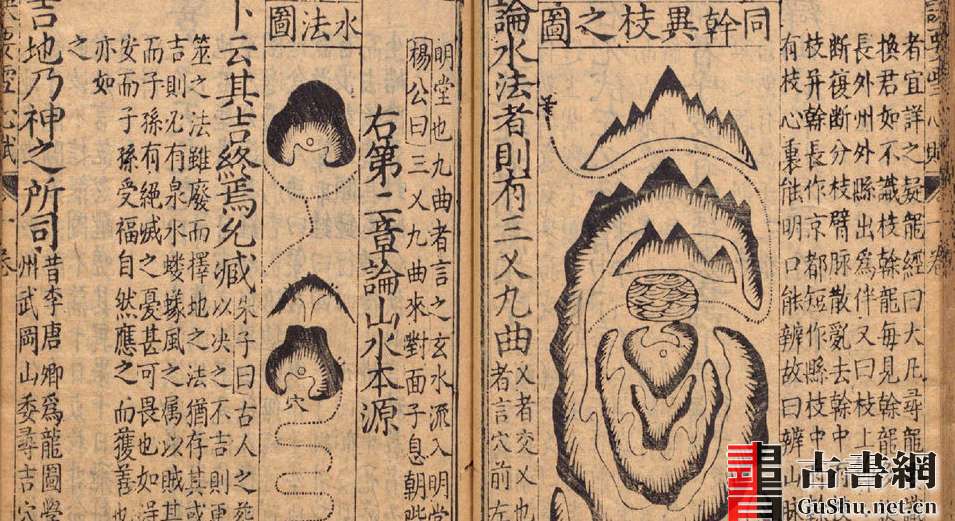 者宜詳之疑龍經曰大凡尋龍
換君如不識枝幹龍每見幹龍
長外州外縣出爲伴又曰枝上
斷復斷分枝劈脉散亂去幹中
枝并幹長作京都短作縣枝中
有枝心裏能明口能辨故曰辨山
同幹異枝之圖
論水法者則有三乂九曲
乂者交乂也
者言穴前
明堂也九曲者言之玄水流入明
楊公曰三乂九曲來對面子息朝
右第二章論山水本源
水法圖
穴
卜云其吉終焉允臧
朱子曰古人之
以決之不吉則更
筮之法雖廢而擇地之法猶存其或
吉則必有泉水螻蟻風之屬以賊其
而子孫有絕滅之憂甚可畏也如
安而子孫受福自然應之而獲善也
亦如之
吉地乃神之所司
昔李唐卿爲龍圖學
州武岡山委尋吉穴
古書網
GuShu.net.cn